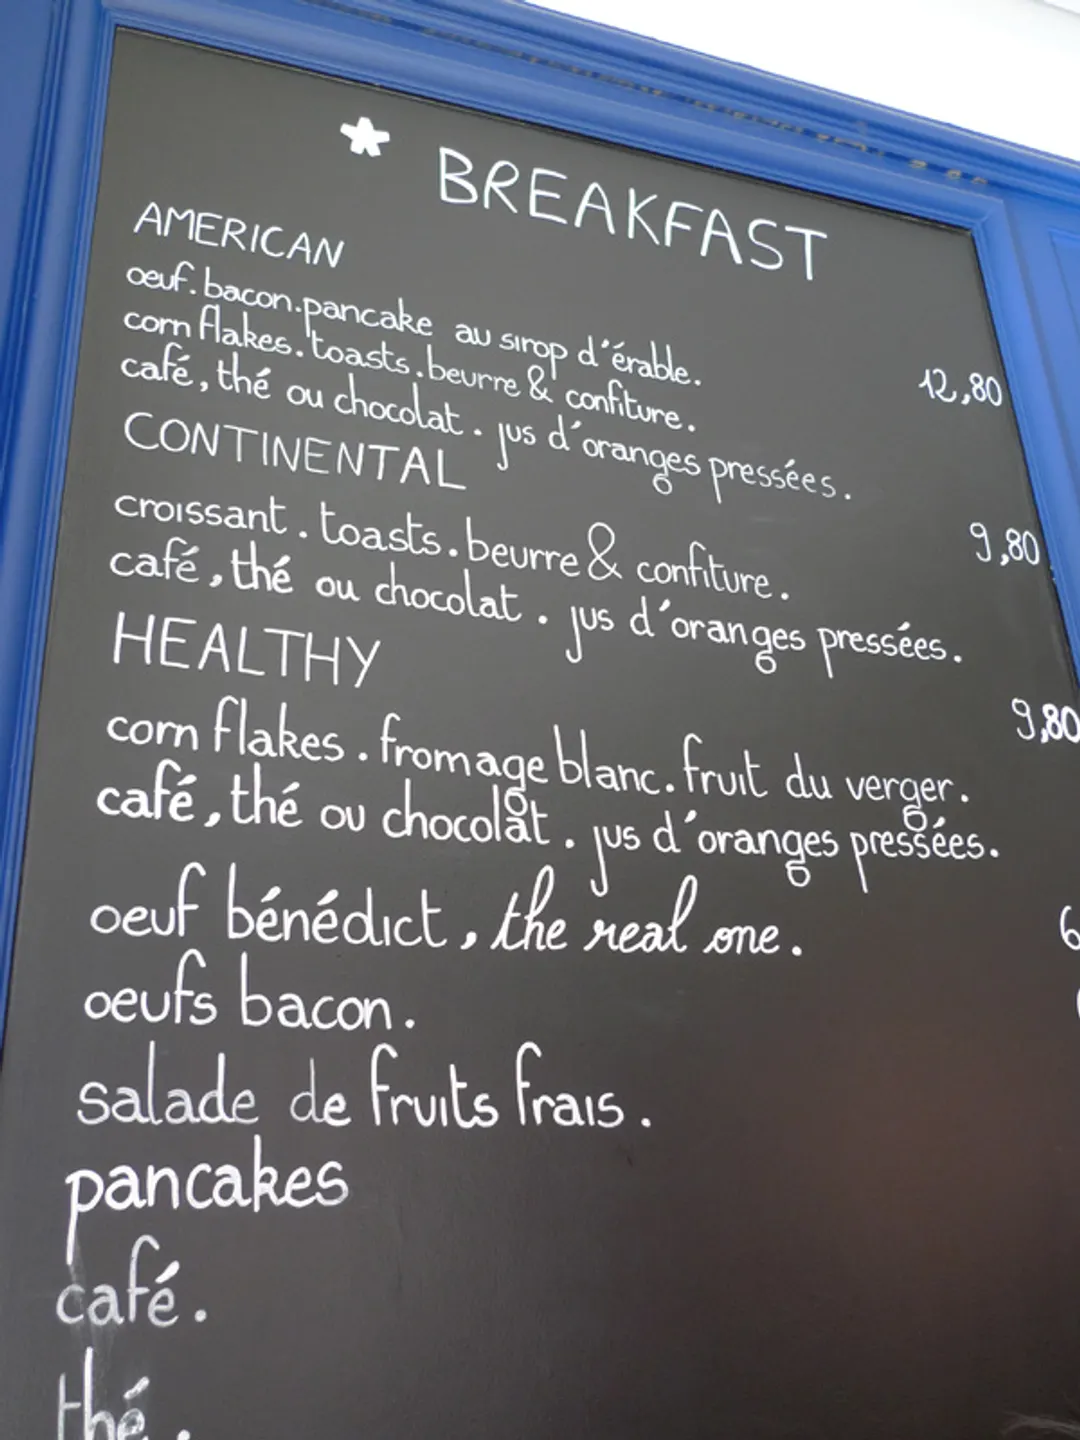 * BREAKFAST
AMERICAN
oeuf. bacon. pancake au sirop d'érable.
corn flakes. toasts. beurre & confiture. 12,80
café, thé ou chocolat. jus d'oranges pressées.
CONTINENTAL
croissant. toasts. beurre & confiture. 9,80
café, thé ou chocolat. jus d'oranges pressées.
HEALTHY
corn flakes. fromage blanc. fruit du verger. 9,80
café, thé ou chocolat. jus d'oranges pressées.
oeuf bénédict, the real one. 6
oeufs bacon.
salade de fruits frais.
pancakes
café.
thé.